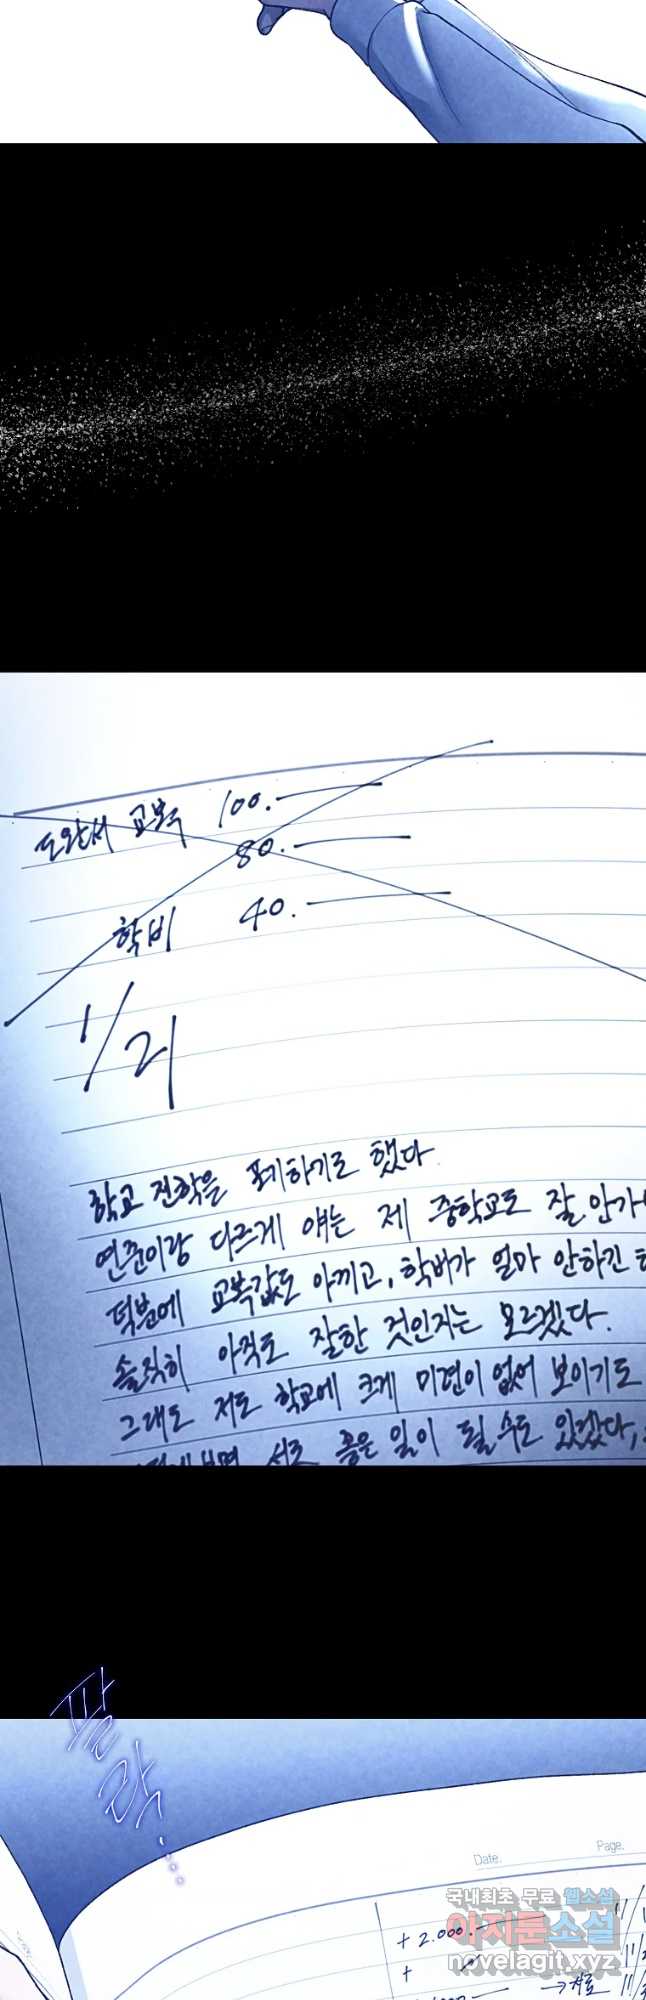 도완서 교복 100.
80.
학비 40.
1/21
학교 전학을 포기하기로 했다.
연준이랑 다르게 얘는 제 중학교도 잘 안가
덕분에 교복값도 아끼고, 학비가 얼마 안하긴 하
솔직히 아직도 잘한 것인지는 모르겠다.
그래도 저도 학교에 크게 미련이 없어 보이기도
보면 서로 좋은 일이 될 수도 있겠다,
팔락
Date. Page.
+ 2.000.
국내최초 무료 웹소설
아지툰소설
novelagit.xyz